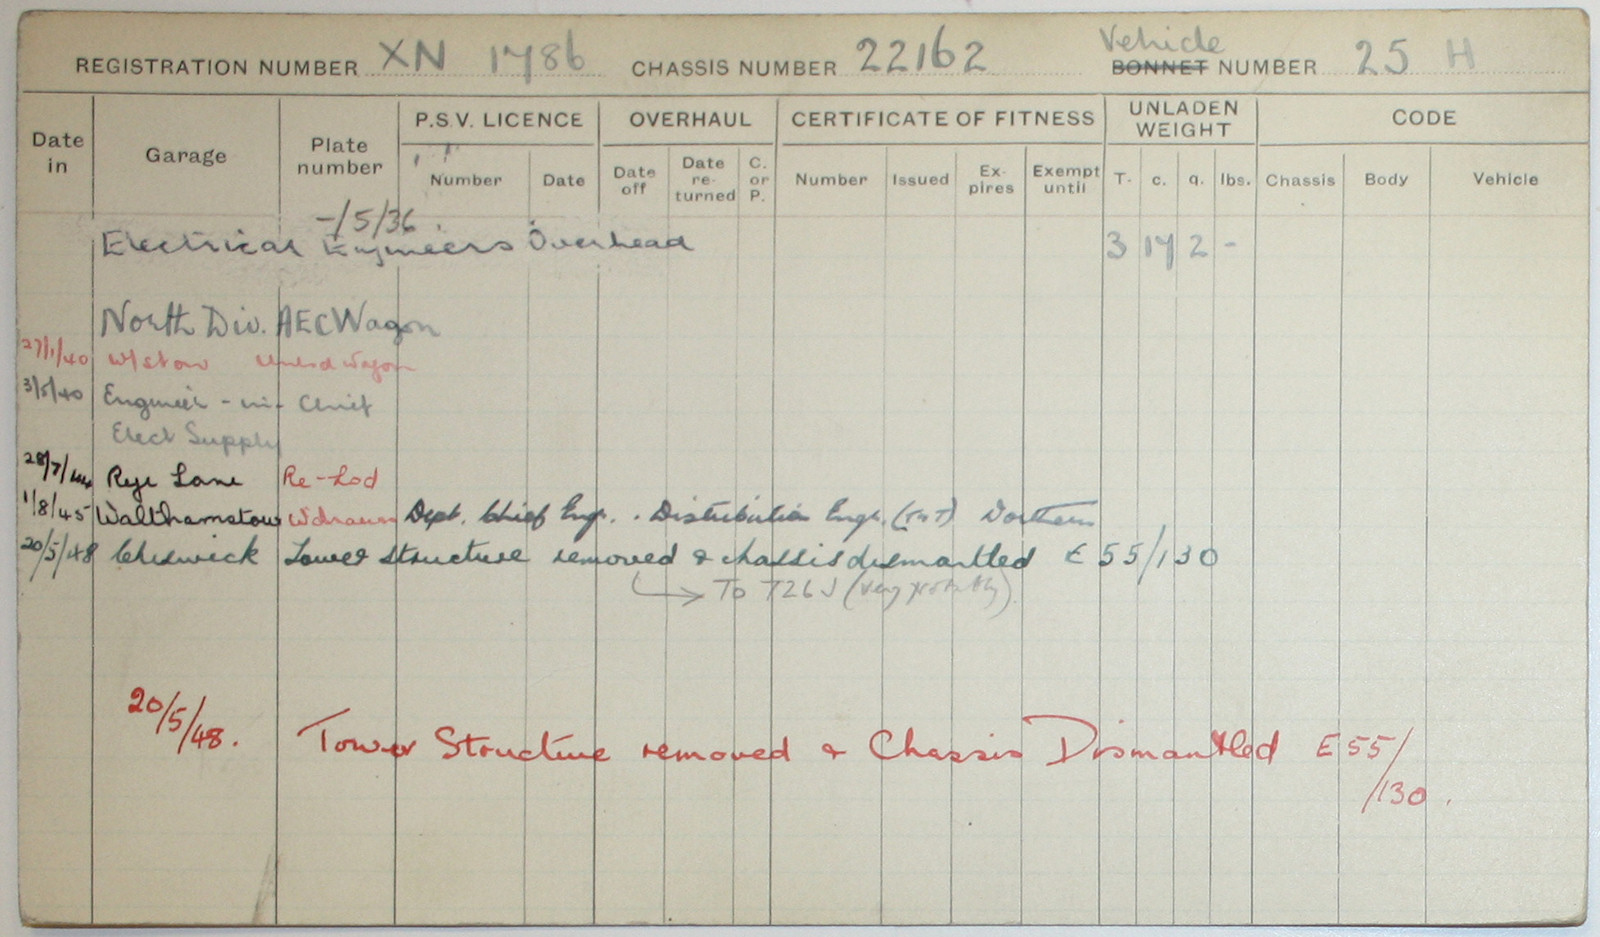 REGISTRATION NUMBER XN 1786 CHASSIS NUMBER 22162 Vehicle BONNET NUMBER 25 H
Date in Garage Plate number P.S.V. LICENCE OVERHAUL CERTIFICATE OF FITNESS UNLADEN WEIGHT CODE
Number Date Date off Date re-turned C. or P. Number Issued Ex-pires Exempt until T. c. q. lbs. Chassis Body Vehicle
-/5/36.
Electrical Engineers Overhead 3 17 2 -
North Div. AEC Wagon
27/1/40 W/stow Wagon
3/5/40 Engineer-in-Chief
Elect Supply
28/7/44 Rye Lane Re-Lod
1/8/45 Walthamstow Wdrawn Dept. Chief Engr. Distribution Engr. (T&T) Northern
20/5/48 Chiswick Tower structure removed & chassis dismantled E 55/130
To T26J (very probably)
20/5/48. Tower Structure removed & Chassis Dismantled E55/
/130.